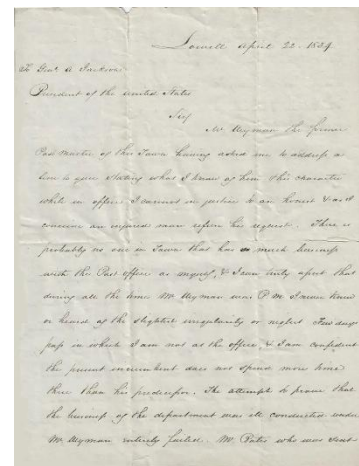 Lowell April 22. 1834
To Genl. A Jackson
President of the United States
Sir
Mr Wyman the former
Post master of this Town having asked me to address a
line to you stating what I know of him & his character
while in office, I cannot in justice to an honest & as I
conceive an injured man refuse his request. There is
probably no one in Town that has so much business
with the Post office as myself, & I can truly assert that
during all the time Mr Wyman was P. M I never knew
or heard of the slightest irregularity or neglect Few days
pass in which I am not at the office, & I am confident
the present incumbent does not spend more time
there than his predecessor. The attempt to prove that
the business of the department was ill conducted under
Mr Wyman entirely failed. Mr who was sent